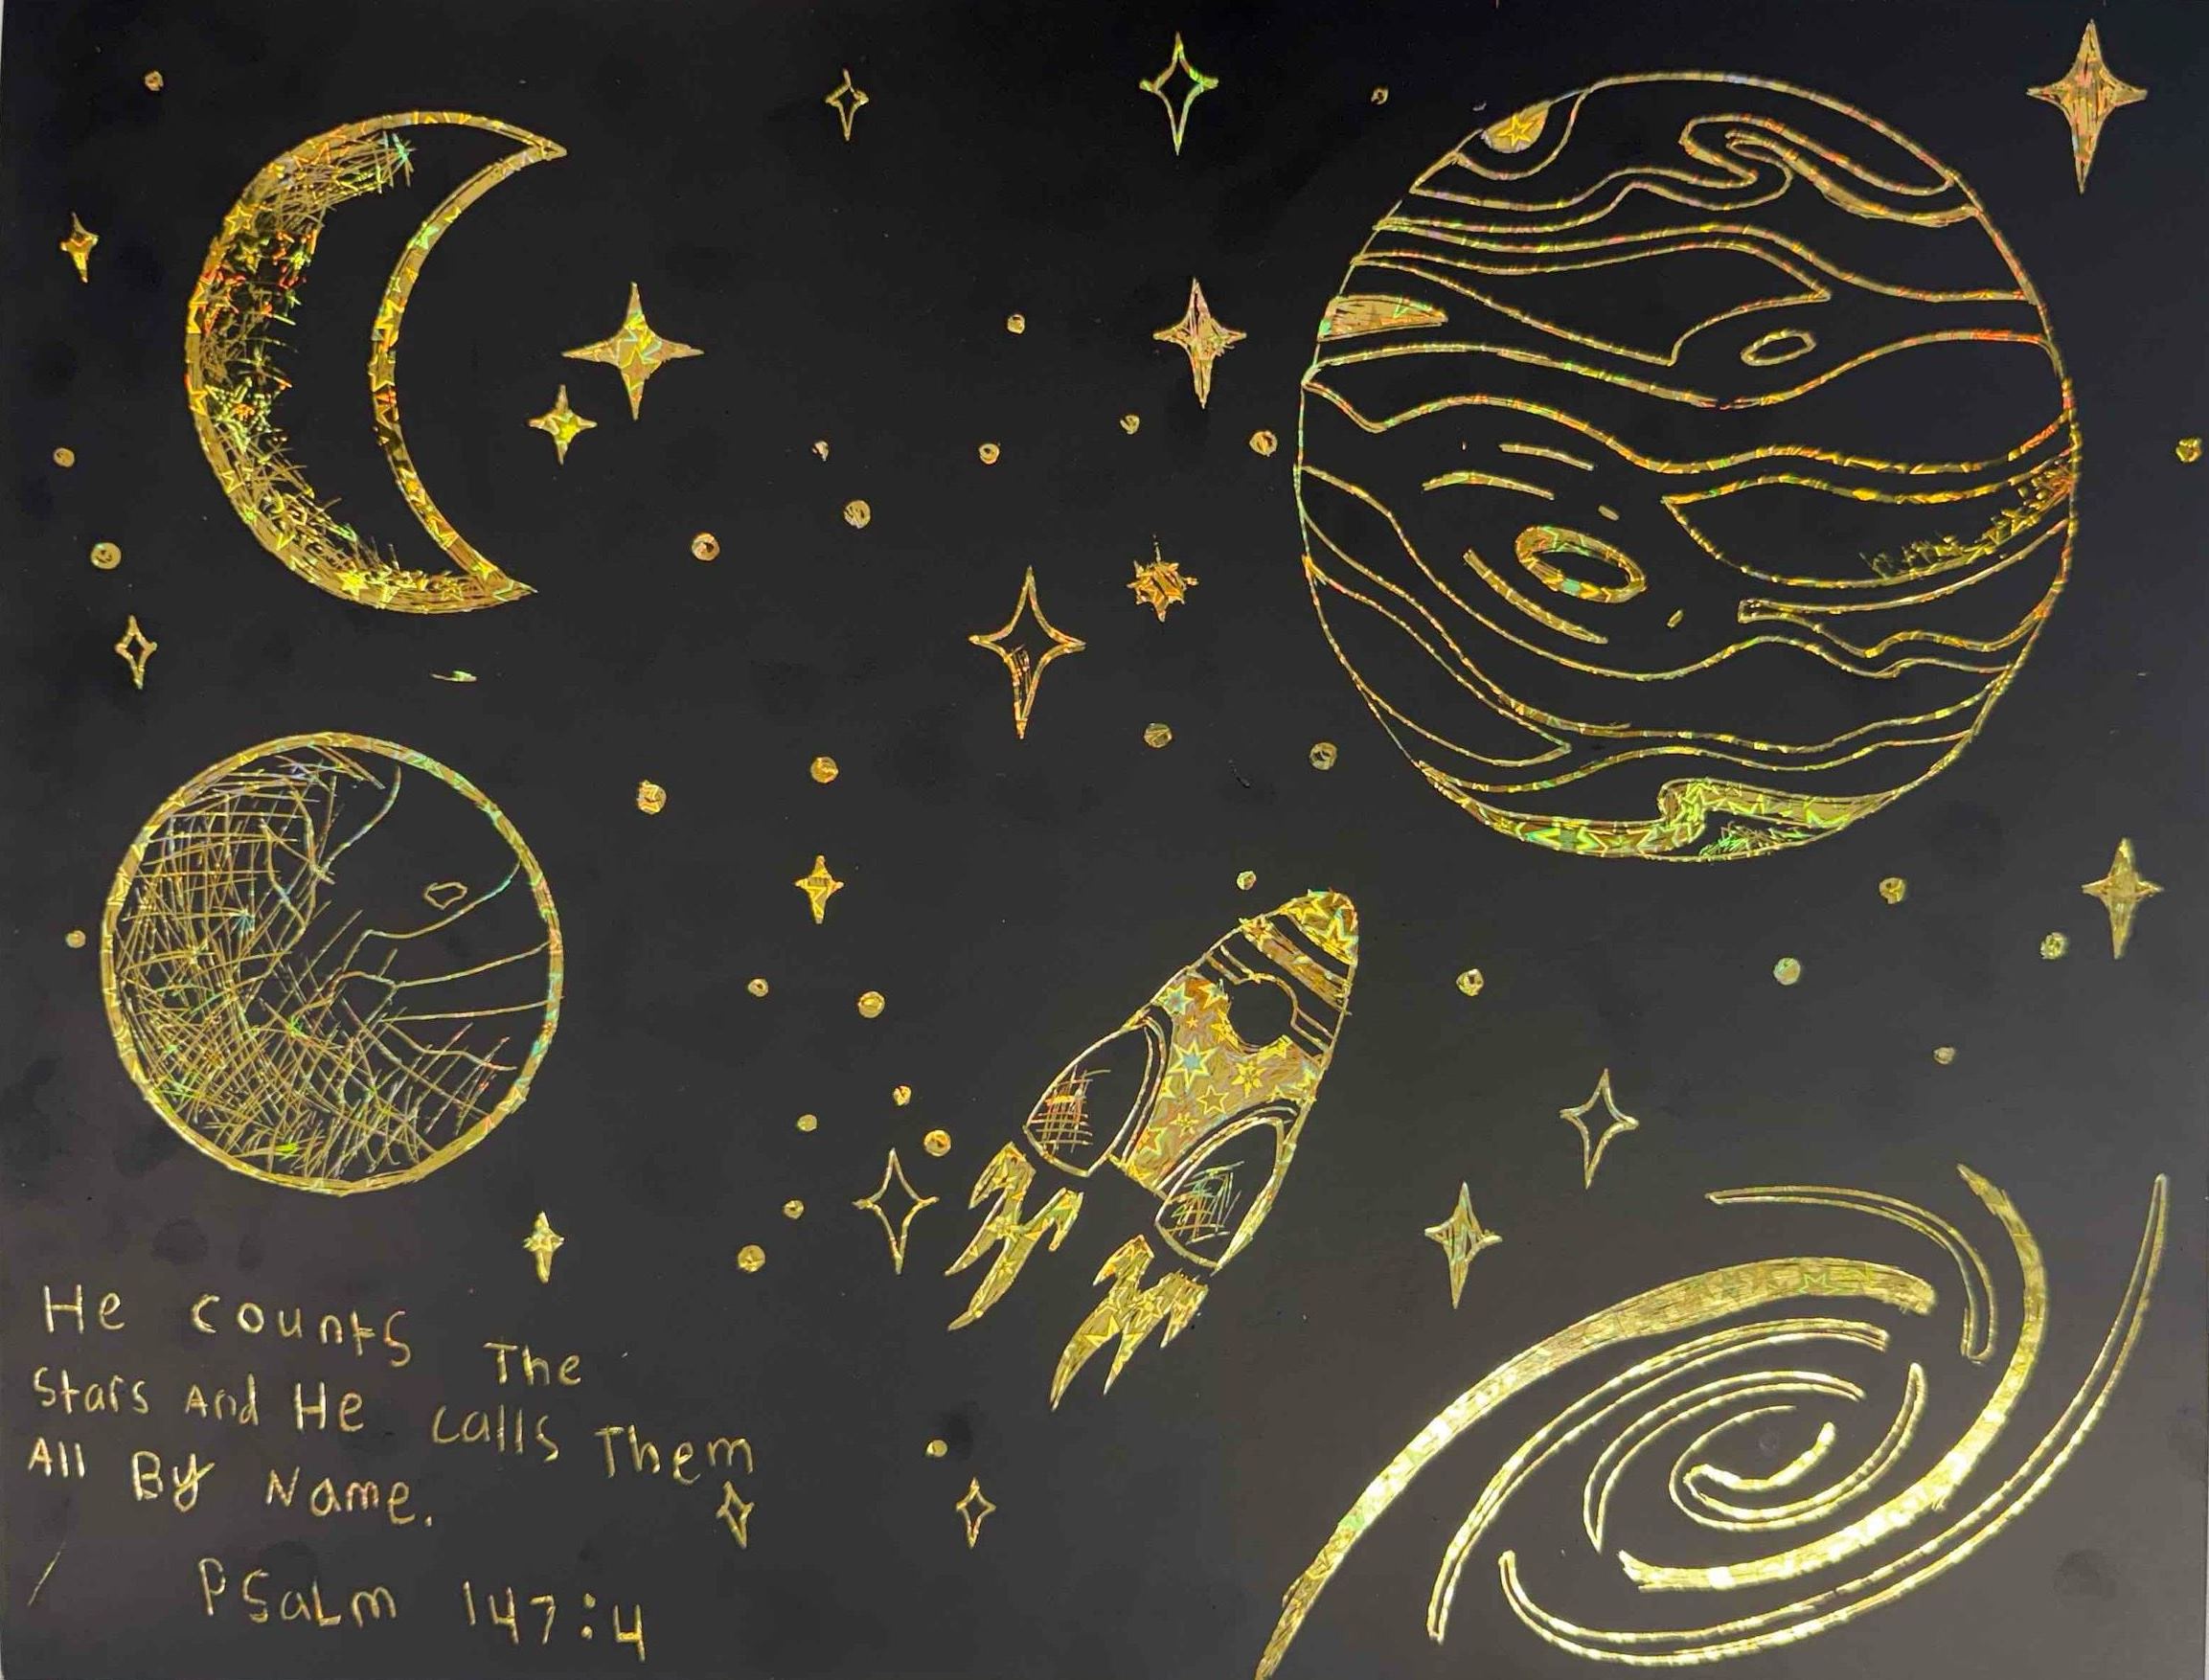 He counts The
Stars And He calls Them
All By Name.
PSaLm 147:4